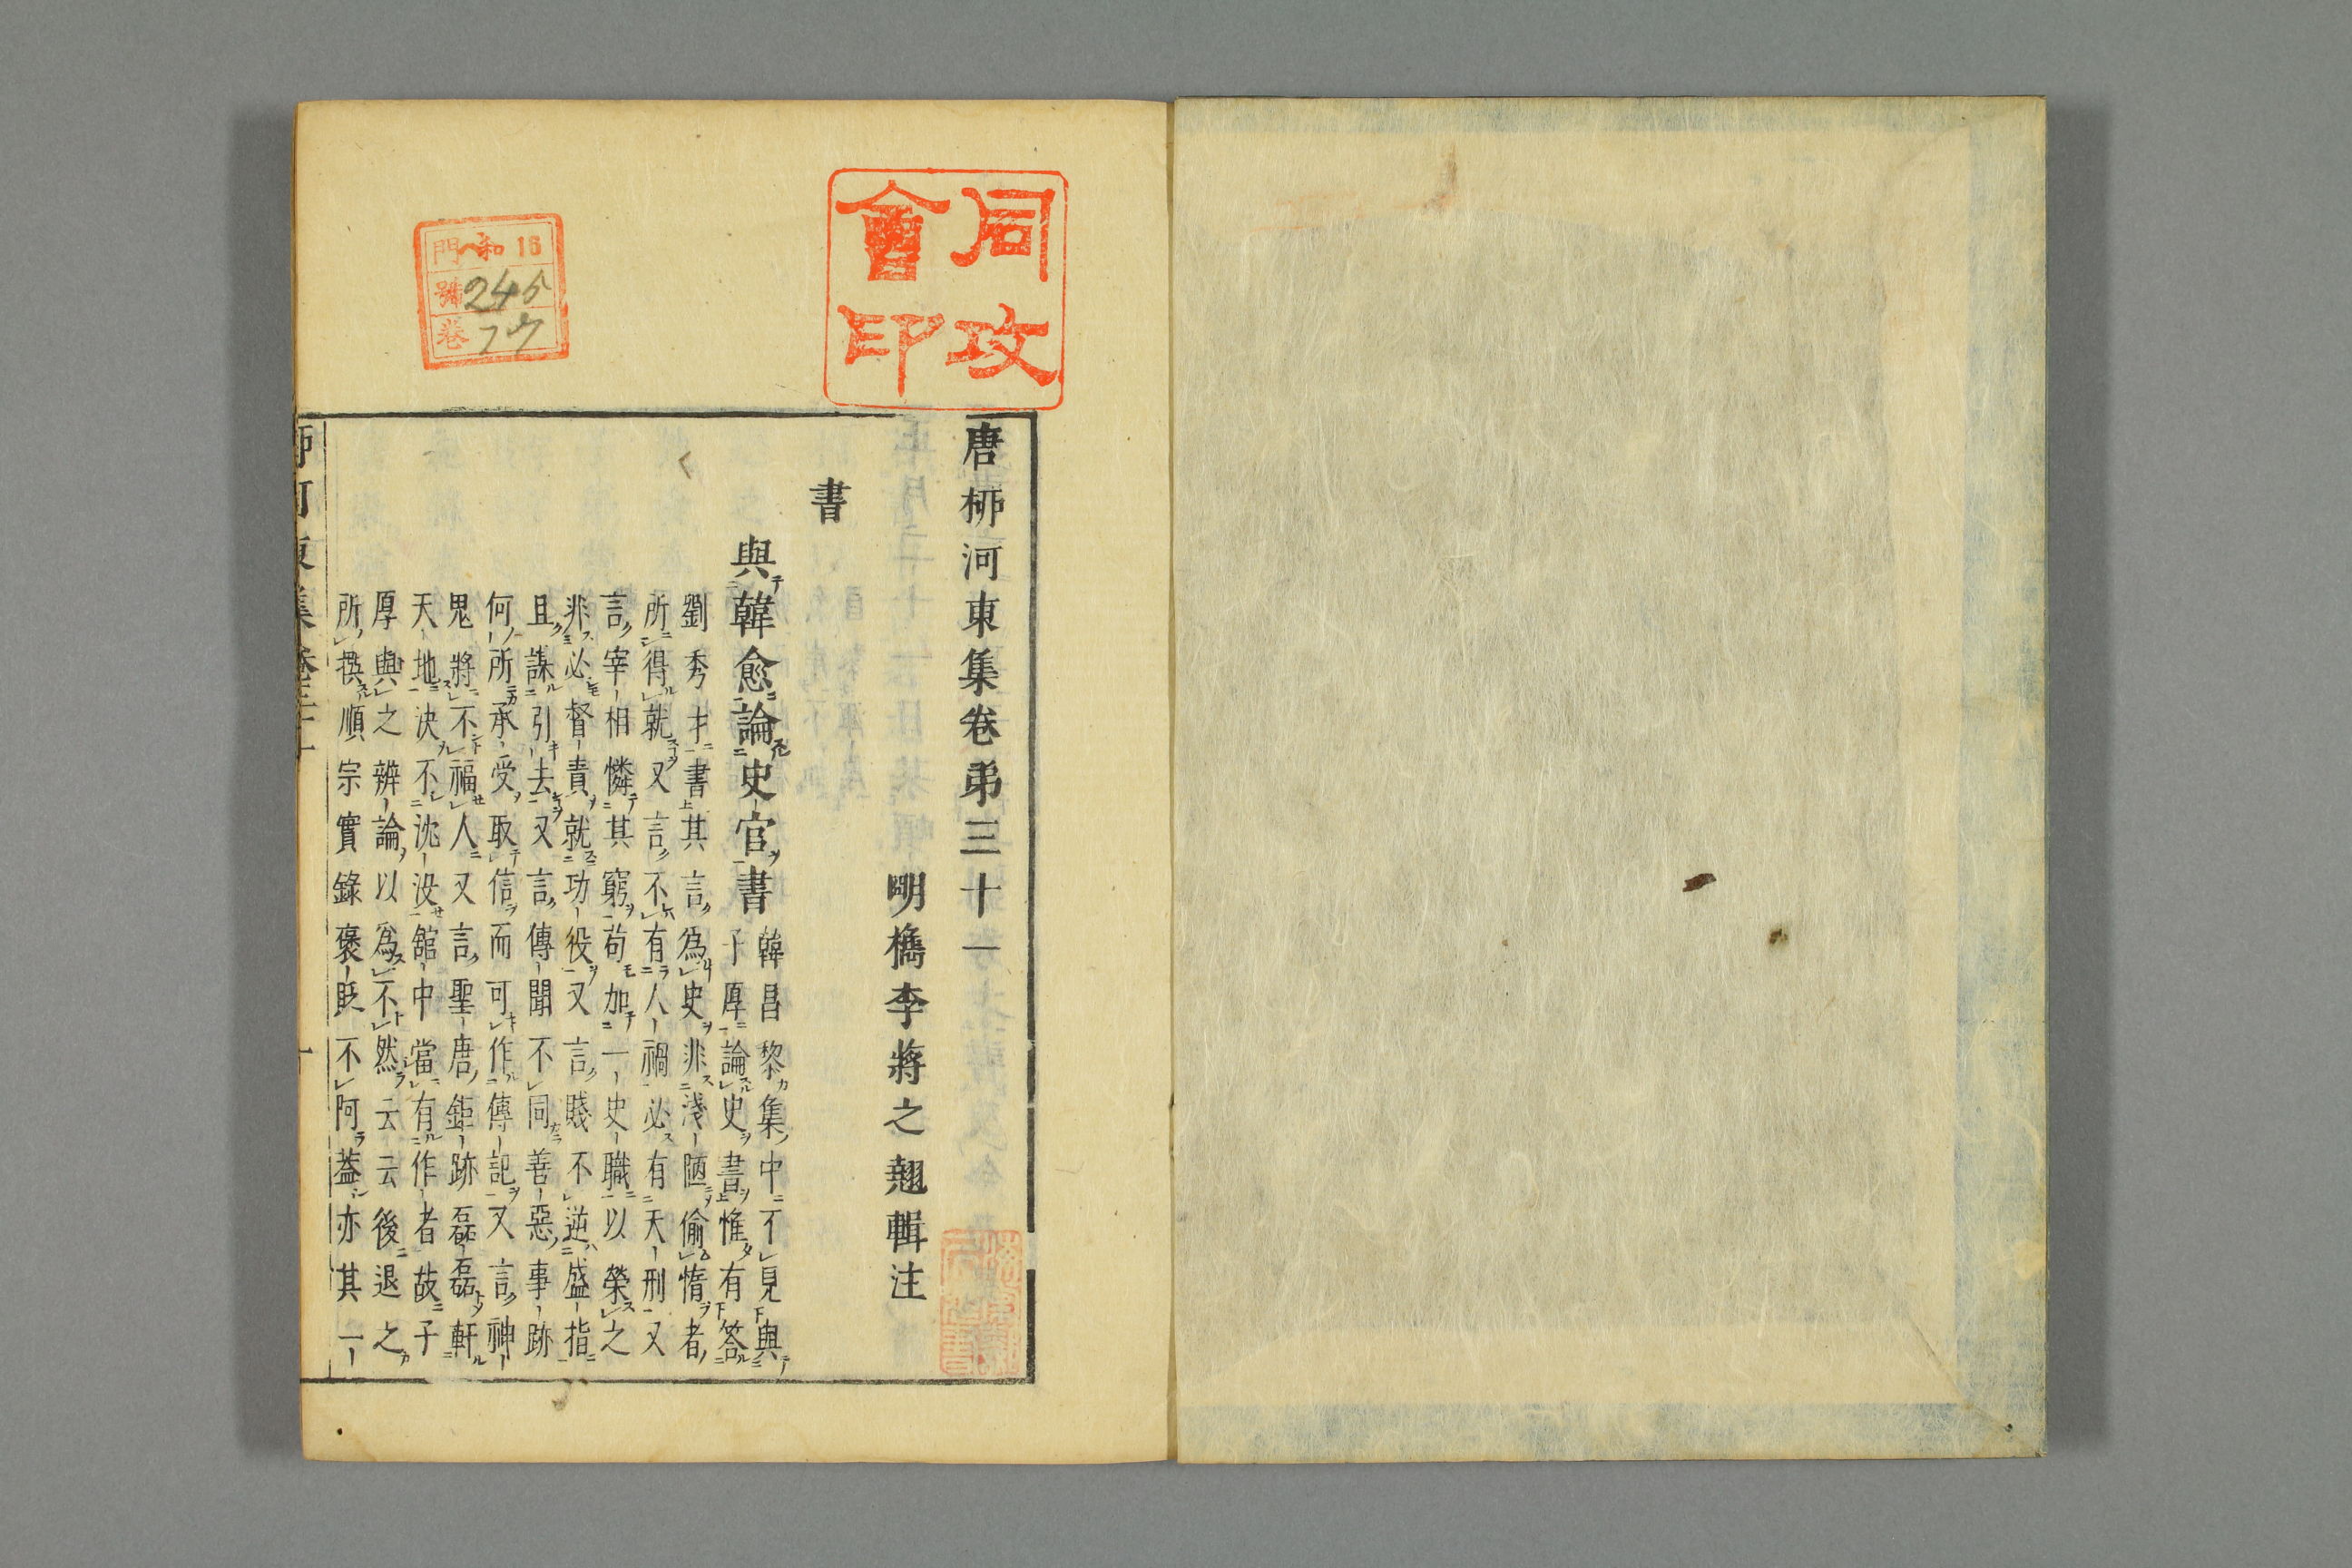 同攻
會印
和 16
門
號 245
卷 17
唐栁河東集卷弟三十一
明檇李蔣之翹輯注
書
與韓愈論史官書
韓昌黎集中不見與
子厚論史書惟有答
劉秀才書其言爲史非淺陋偷惰者
所得就又言不有人禍必有天刑又
言宰相憐其窮苟加一史職以榮之
非必督責就功役又言賤不逆盛指
且謀引去又言傳聞不同善惡事跡
何所承受取信而可作傳記又言神
鬼將不福人又言聖唐鉅跡磊磊軒
天地決不沈没舘中當有作者故子
厚與之辨論以爲不然云云後退之
所撰順宗實錄褒貶不阿葢亦其一